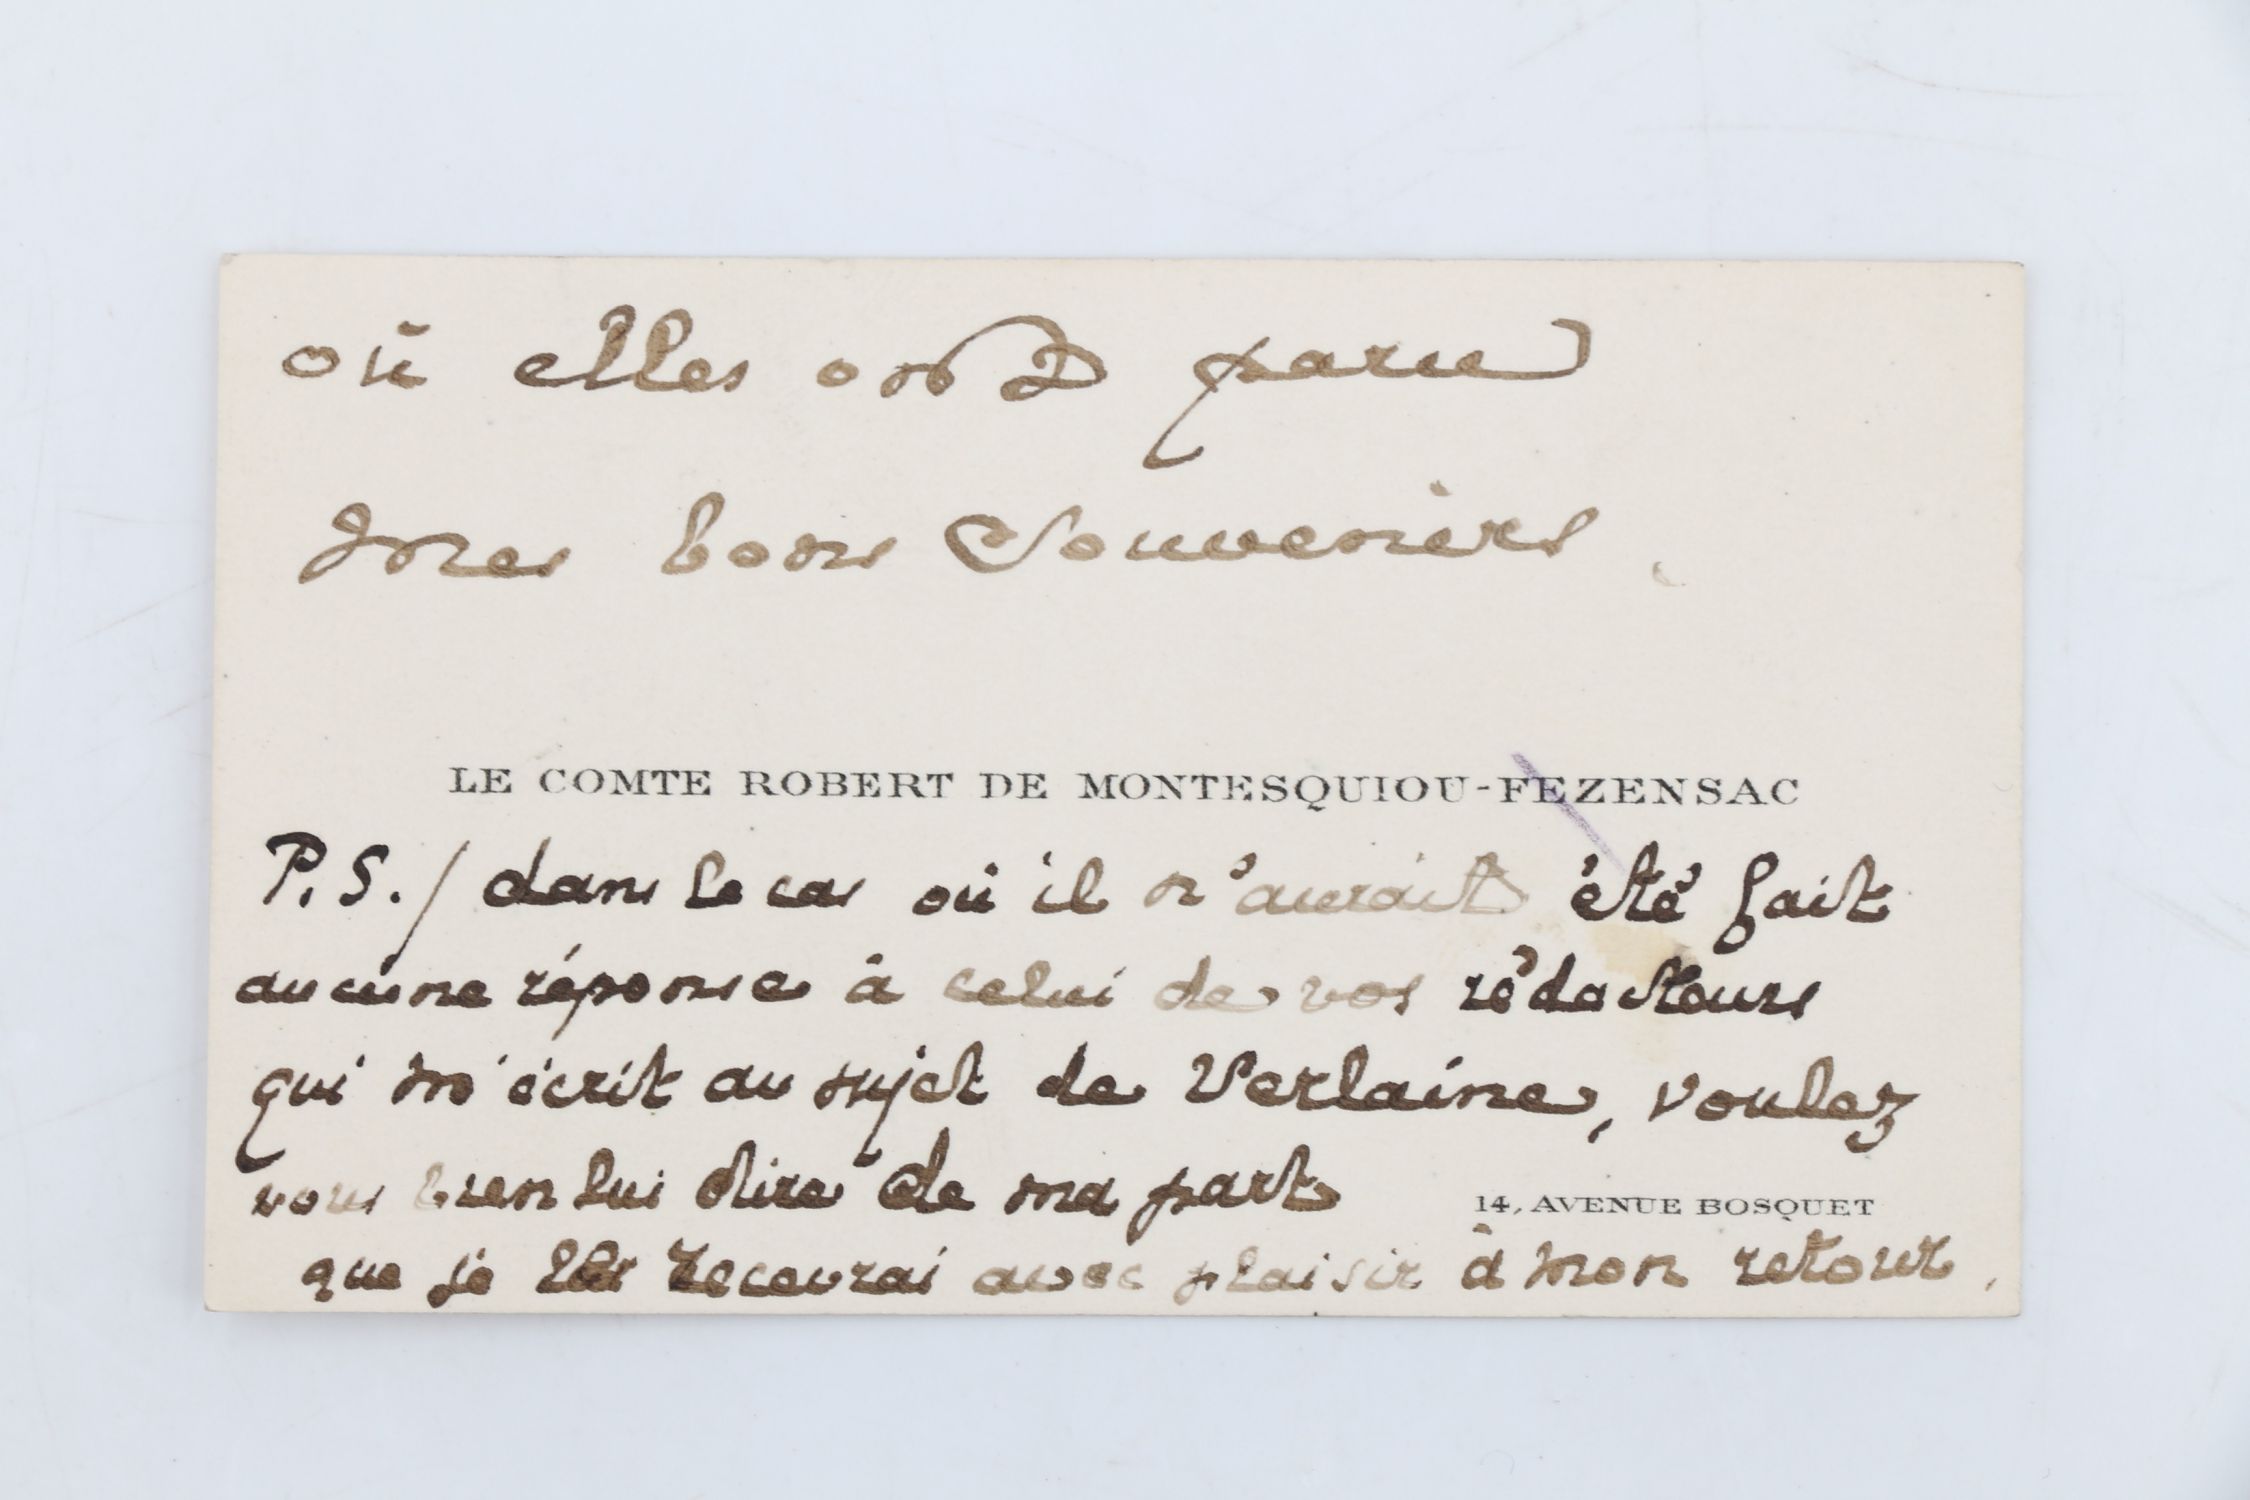 où elles ont paru
mes bons souvenirs.
LE COMTE ROBERT DE MONTESQUIOU-FEZENSAC
P.S./ dans le cas où il n'aurait été fait
aucune réponse à celui de vos rédacteurs
qui m'écrit au sujet de Verlaine, voulez
vous bien lui dire de ma part
14, AVENUE BOSQUET
que je recevrai avec plaisir à mon retour.